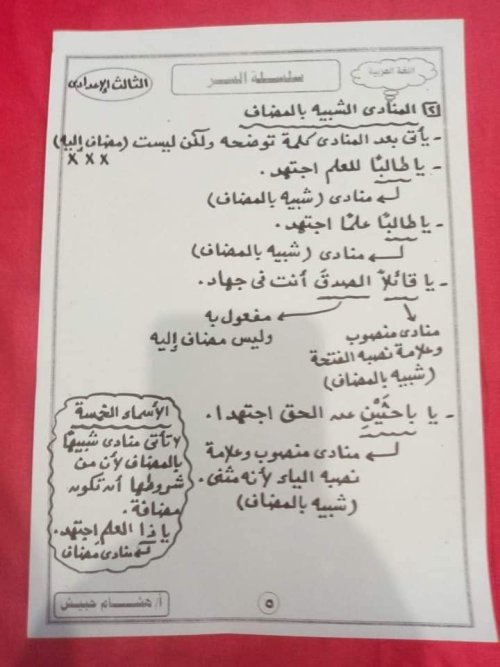 اللغة العربية
سلسلة النسر
الثالث الإعدادى
٢ المنادى الشبيه بالمضاف
- يأتى بعد المنادى كلمة توضحه ولكن ليست (مضاف إليه)
X X X
- يا طالبًا للعلم اجتهد.
منادى (شبيه بالمضاف)
- يا طالبًا علمًا اجتهد.
منادى (شبيه بالمضاف)
- يا قائلاً الصدقَ أنت فى جهاد.
مفعول به
وليس مضاف إليه
منادى منصوب
وعلامة نصبه الفتحة
(شبيه بالمضاف)
- يا باحثَيْنِ عن الحق اجتهدا.
منادى منصوب وعلامة
نصبه الياء لأنه مثنى.
(شبيه بالمضاف)
الأسماء الخمسة
لا تأتى منادى شبيهًا
بالمضاف لأن من
شروطها أن تكون
مضافة.
يا ذا العلم اجتهد.
منادى مضاف
أ/ هشام حبيش
٥